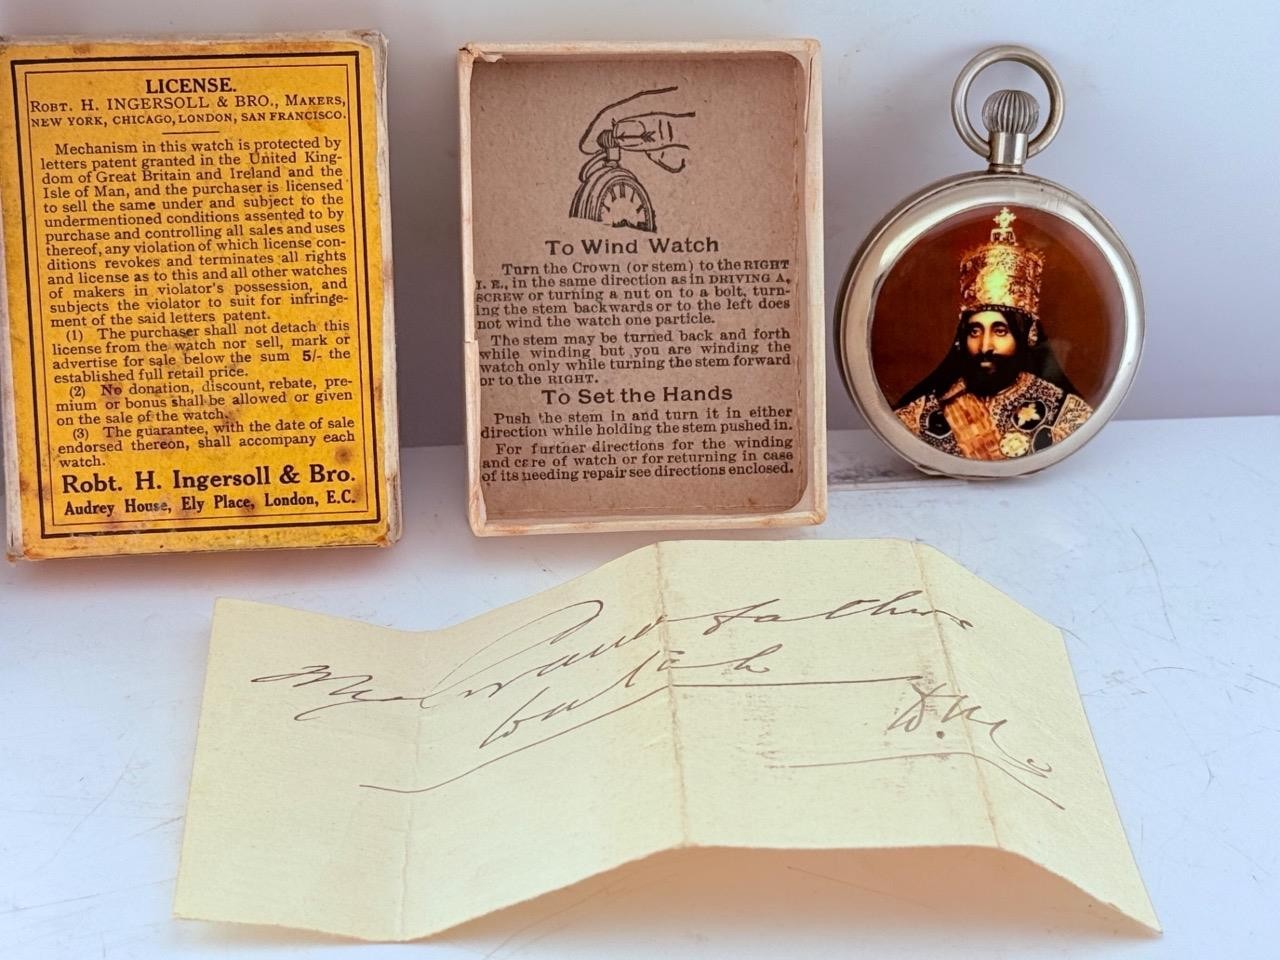 LICENSE.
ROBT. H. INGERSOLL & BRO., MAKERS,
NEW YORK, CHICAGO, LONDON, SAN FRANCISCO.
Mechanism in this watch is protected by
letters patent granted in the United King-
dom of Great Britain and Ireland and the
Isle of Man, and the purchaser is licensed
to sell the same under and subject to the
undermentioned conditions assented to by
purchase and controlling all sales and uses
thereof, any violation of which license con-
ditions revokes and terminates all rights
and license as to this and all other watches
of makers in violator's possession, and
subjects the violator to suit for infringe-
ment of the said letters patent.
(1) The purchaser shall not detach this
license from the watch nor sell, mark or
advertise for sale below the sum 5/- the
established full retail price.
(2) No donation, discount, rebate, pre-
mium or bonus shall be allowed or given
on the sale of the watch.
(3) The guarantee, with the date of sale
endorsed thereon, shall accompany each
watch.
Robt. H. Ingersoll & Bro.
Audrey House, Ely Place, London, E.C.
To Wind Watch
Turn the Crown (or stem) to the RIGHT
I. E., in the same direction as in DRIVING A
SCREW or turning a nut on to a bolt, turn-
ing the stem backwards or to the left does
not wind the watch one particle.
The stem may be turned back and forth
while winding but you are winding the
watch only while turning the stem forward
or to the RIGHT.
To Set the Hands
Push the stem in and turn it in either
direction while holding the stem pushed in.
For further directions for the winding
and care of watch or for returning in case
of its needing repair see directions enclosed.
My Grand father
watch
D.M.